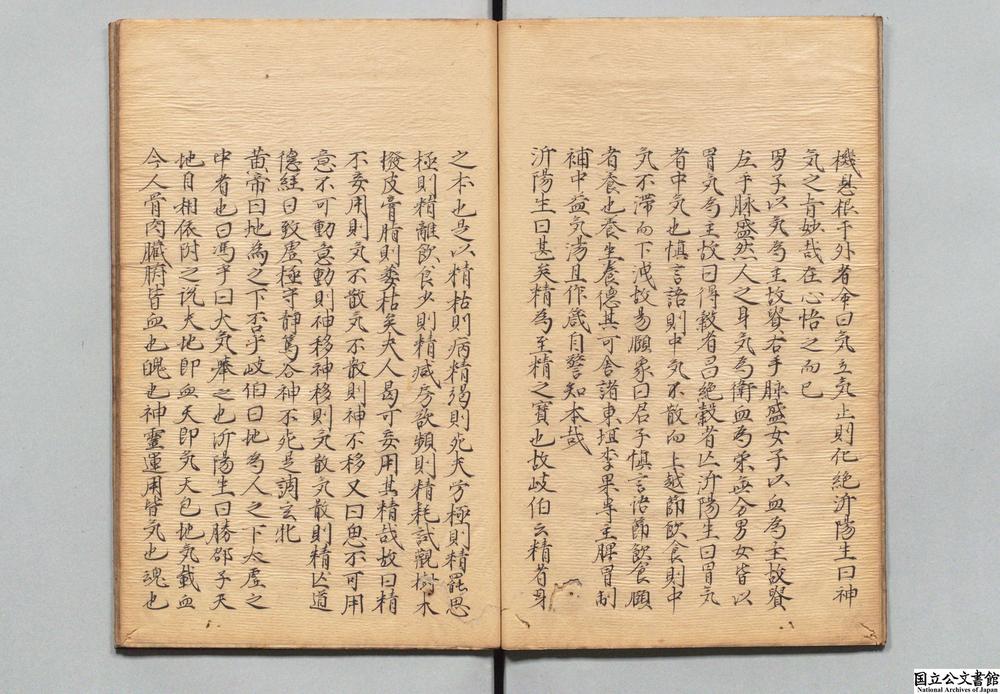 機息根于外者命曰気立気止則化絶沂陽生曰神
気之肯妙哉在心悟之而已
男子以気為主故賢右手脉盛女子以血為主故賢
左手脉盛然人之身気為衛血為栄無分男女皆以
胃気為主故曰得穀者昌絶穀者亡沂陽生曰胃気
者中気也慎言語則中気不散而上越節飲食則中
気不滞而下洩故易頤象曰君子慎言語節飲食頤
者養也養生養徳其可舎諸東垣李果専主脾胃制
補中益気湯且作箴自警知本哉
沂陽生曰甚矣精為至精之寳也故岐伯云精者身
之本也是以精枯則病精竭則死夫労極則精罷思
極則精離飲食少則精減房欲頻則精耗試觀樹木
撥皮膏脂則萎枯矣夫人曷可妄用其精哉故曰精
不妄用則気不散気不散則神不移又曰思不可用
意不可動意動則神移神移則気散気散則精亡道
徳経曰致虚極守静篤谷神不死是謂玄牝
黄帝曰地為之下否乎岐伯曰地為人之下太虚之
中者也曰馮乎曰大気挙之也沂陽生曰勝邵子天
地自相依附之説夫地即血天即気天包地気載血
今人骨肉臓腑皆血也魄也神靈運用皆気也魂也
国立公文書館
National Archives of Japan